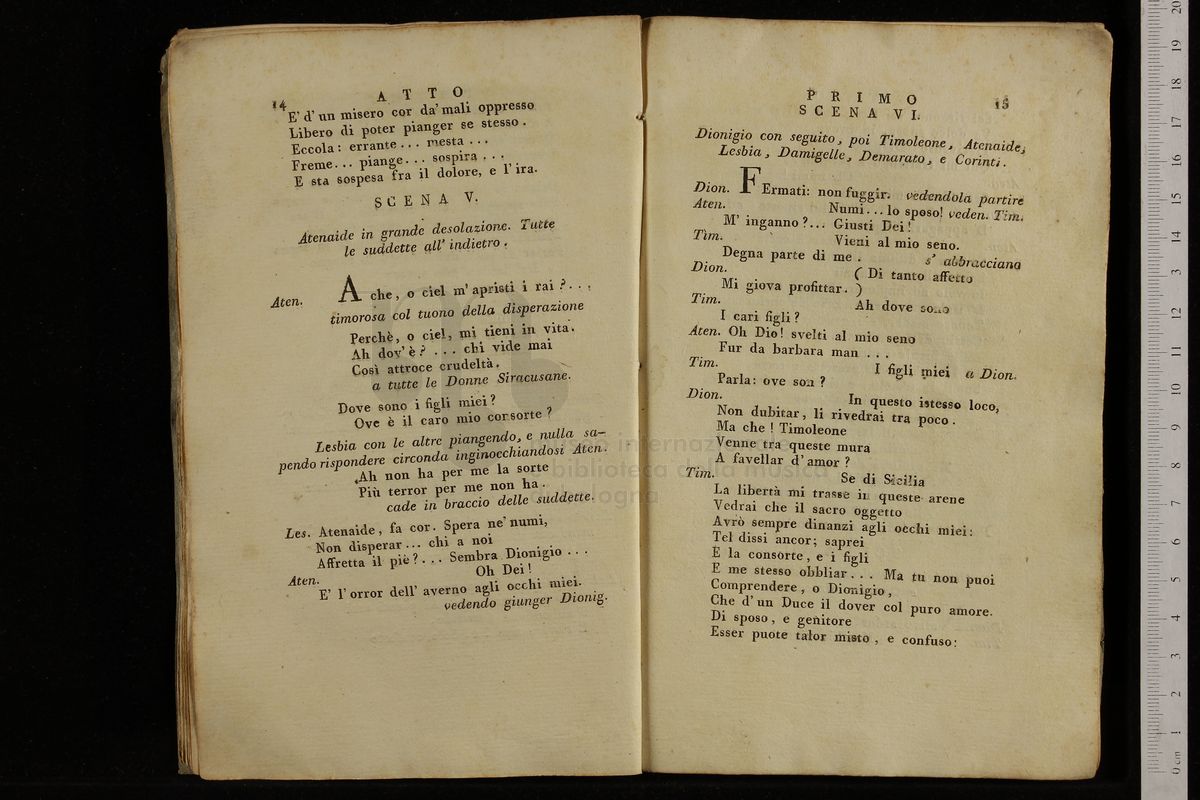 14
A T T O
E' d' un misero cor da' mali oppresso
Libero di poter pianger se stesso .
Eccola : errante . . . mesta . . .
Freme. . . piange. . . sospira . . .
E sta sospesa fra il dolore, e l' ira.
S C E N A  V.
Atenaide in grande desolazione. Tutte
le suddette all' indietro .
Aten. A che, o ciel m' apristi i rai ? . . .
timorosa col tuono della disperazione
Perchè, o ciel, mi tieni in vita.
Ah dov' è ? . . . chi vide mai
Così attroce crudeltà.
a tutte le Donne Siracusane.
Dove sono i figli miei ?
Ove è il caro mio consorte ?
Lesbia con le altre piangendo, e nulla sa-
pendo rispondere circonda inginocchiandosi Aten.
Ah non ha per me la sorte
Più terror per me non ha .
cade in braccio delle suddette.
Les. Atenaide, fa cor. Spera ne' numi,
Non disperar ... chi a noi
Affretta il piè ? . . . Sembra Dionigio . . .
Aten. Oh Dei !
E' l' orror dell' averno agli occhi miei.
vedendo giunger Dionig.
P R I M O
15
S C E N A  V I.
Dionigio con seguito, poi Timoleone, Atenaide,
Lesbia, Damigelle, Demarato, e Corinti.
Dion. FErmati: non fuggir. vedendola partire
Aten. Numi... lo sposo! veden. Tim.
M' inganno ?... Giusti Dei !
Tim. Vieni al mio seno.
Degna parte di me . s' abbracciano
Dion. ( Di tanto affetto
Mi giova profittar. )
Tim. Ah dove sono
I cari figli ?
Aten. Oh Dio ! svelti al mio seno
Fur da barbara man . . .
Tim. I figli miei a Dion.
Parla: ove son ?
Dion. In questo istesso loco,
Non dubitar, li rivedrai tra poco .
Ma che ! Timoleone
Venne tra queste mura
A favellar d' amor ?
Tim. Se di Sicilia
La libertà mi trasse in queste arene
Vedrai che il sacro oggetto
Avrò sempre dinanzi agli occhi miei:
Tel dissi ancor; saprei
E la consorte, e i figli
E me stesso obbliar . . . Ma tu non puoi
Comprendere, o Dionigio,
Che d' un Duce il dover col puro amore.
Di sposo, e genitore
Esser puote talor misto , e confuso:
museo internazionale
e biblioteca della musica
di bologna